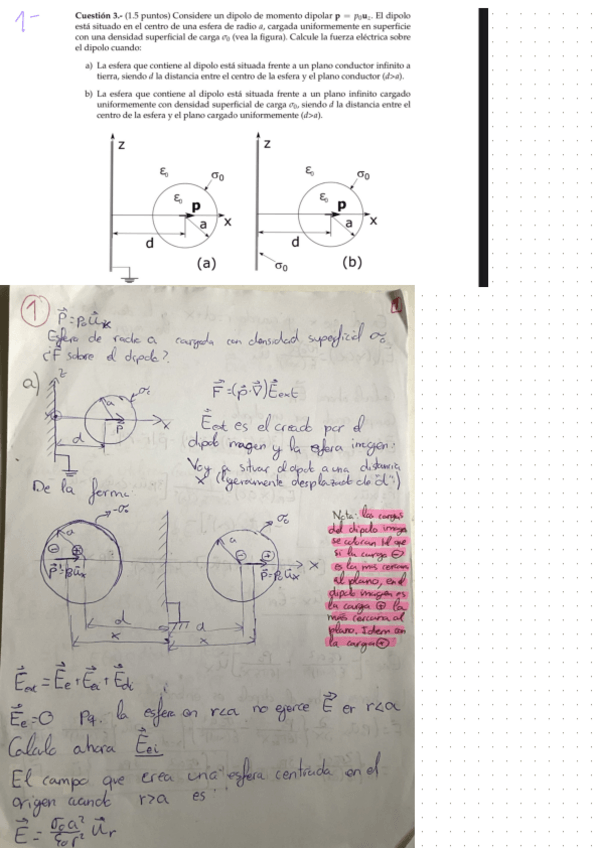 1-
Cuestión 3.- (1.5 puntos) Considere un dipolo de momento dipolar p = p₀uz. El dipolo
está situado en el centro de una esfera de radio a, cargada uniformemente en superficie
con una densidad superficial de carga σ₀ (vea la figura). Calcule la fuerza eléctrica sobre
el dipolo cuando:
a) La esfera que contiene al dipolo está situada frente a un plano conductor infinito a
tierra, siendo d la distancia entre el centro de la esfera y el plano conductor (d>a).
b) La esfera que contiene al dipolo está situada frente a un plano infinito cargado
uniformemente con densidad superficial de carga σ₀, siendo d la distancia entre el
centro de la esfera y el plano cargado uniformemente (d>a).
z ε₀ σ₀ ε₀ p a x d (a)
z ε₀ σ₀ ε₀ p a x d σ₀ (b)
1
1
p⃗ = p₀ u⃗x
Esfera de radio a cargada con densidad superficial σ₀
¿F⃗ sobre el dipolo?
a)
z a σ₀ p⃗ d x
F⃗ = (p⃗·∇⃗)E⃗ext
E⃗ext es el creado por el
dipolo imagen y la esfera imagen.
Voy a situar el dipolo a una distancia
x (ligeramente desplazado de "d")
De la forma:
-σ₀ a ⊖ ⊕ p⃗'=p₀u⃗x
σ₀ a ⊖ ⊕ p⃗=p₀u⃗x x
d d
x x
Nota: las cargas
del dipolo imagen
se colocan tal que
si la carga ⊖
es la mas cercana
al plano, en el
dipolo imagen es
la carga ⊕ la
más cercana al
plano. Idem con
la carga ⊕
E⃗ext = E⃗e + E⃗ei + E⃗di
E⃗e = 0 Pq. la esfera en r<a no ejerce E⃗ en r<a
Calculo ahora E⃗ei
El campo que crea una esfera centrada en el
origen cuando r>a es
E⃗ = σ₀a²/ε₀r² u⃗r